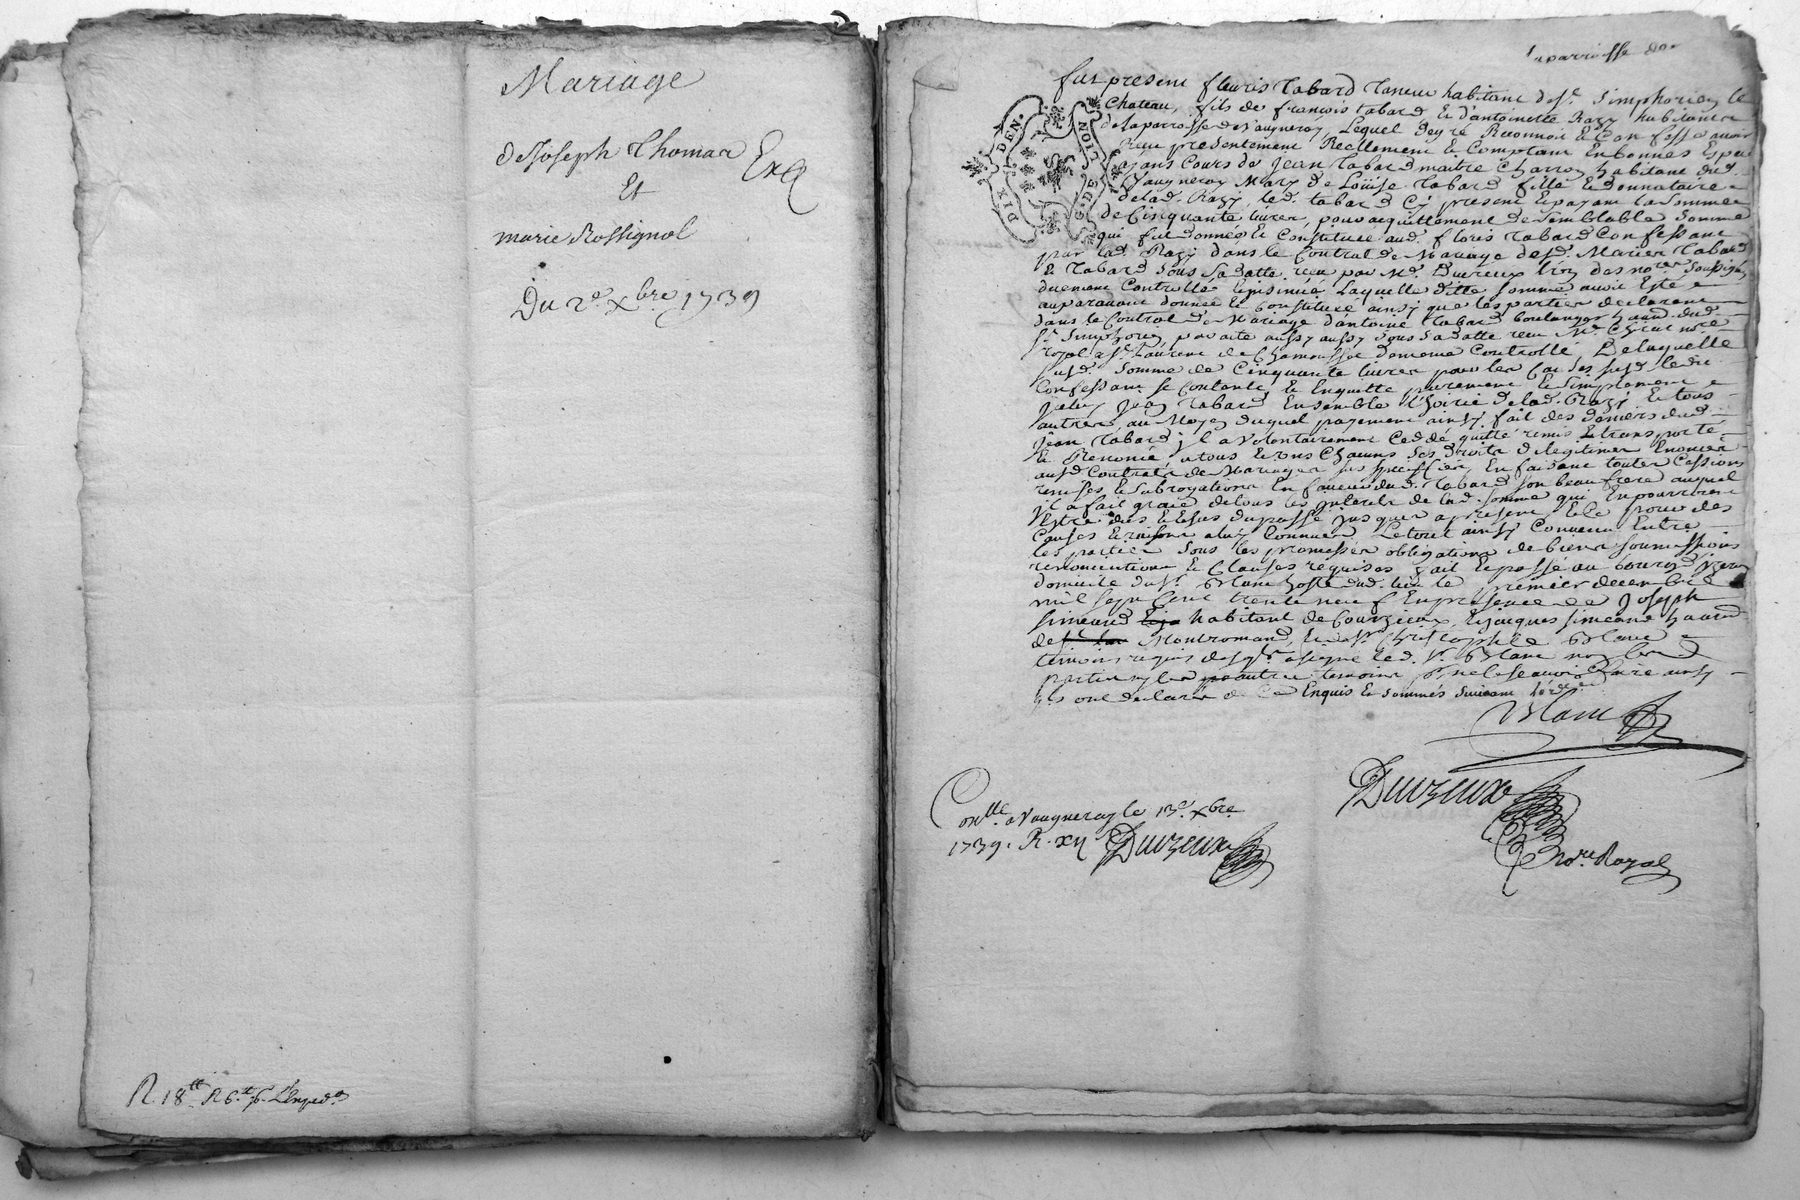 Mariage
de Joseph Thomas
Et
marie Rossignol
Exp
Du 2e Xbre 1739
R 18tt R 6tt p. L'Exped.
la parroisse de
fut present fleuris Tabard Taneur habitant de St. Simphorien le
Chateau, fils de francois tabard & d'antoinette Razy habitants
de la parroisse de Vaugneray, Lequel de gré Reconnoit & Confesse avoir
Receu presentement Reellement & Comptant En bonnes Especes
ayans Cours de Jean Tabard maitre Charron habitant dud.
Vaugneray Mary de Loüise Tabard fille & donnataire
de lad. Razy, led. tabard Cy present & payant la somme
de Cinquante livres, pour acquittement de Semblable Somme
qui fut donnée & Constituée aud. floris Tabard Confessant
par lad. Razy dans le Contrat de Mariage desd. Mariés Tabard
& Tabard sous sa datte receu par Me. Duvzeux l'un des nores. soussignés
duement Controllé & insinué Laquelle ditte somme avoit Esté
auparavant donnée & Constituée ainsy que les parties declarent
dans le Contrat de Mariage d'antoine Tabard boulanger habt. dud.
St. Simphorien aussy aussy sous sa datte receu Me. nore
royal a St. Laurent de Chamousset de meme Controllé, De laquelle
susd. somme de Cinquante livres pour les Causes susd. led.
Confessant se Contente & En quitte purement & simplement
Jceluy Jean Tabard Ensemble l'hoirie de lad. Razy & tous
autres, au Moyen duquel payement ainsy fait des deniers dud.
Jean Tabard, jl a Volontairement Ceddé quitté remis & transporté
& Renoncé a tous & uns Chacuns ses droits de legitimes Enoncés
ausd. Contrats de Mariages sus specifiés, En faisant toutes Cessions
remises & subrogations En faveur dud. Tabard son beau frere auquel
jl a fait grace de tous les jnterets de lad. somme qui En pourroient
Estre dus & Echus du passé jusques a present & Ce pour des
Causes & raisons a luy Connues Le tout ainsy Convenu Entre
les parties sous les promesses obligations de biens soumissions
renonciations & Clauses requises, fait & passé au bourg d'yzeron
domicile du sr. Blanc hoste dud. lieu le premier decembre
mil sept Cent trente neuf En presence de Joseph
simeand habitant de Courzieux, & Jacques simeand habitant
de Montromand, & de sr. Christophle Blanc
temoins requis desqls. a signé led. sr. Blanc non les
parties ny les autres temoins pour ne le sçavoir faire ainsy
qu'ils ont declaré de Ce Enquis & sommés suivant l'ordce.
Blanc
Duvzeux
nore. Royal
Conlle. a Vaugneray le 13e. Xbre
1739. R. xii s Duvzeux
DIX DEN.
G. DE LION